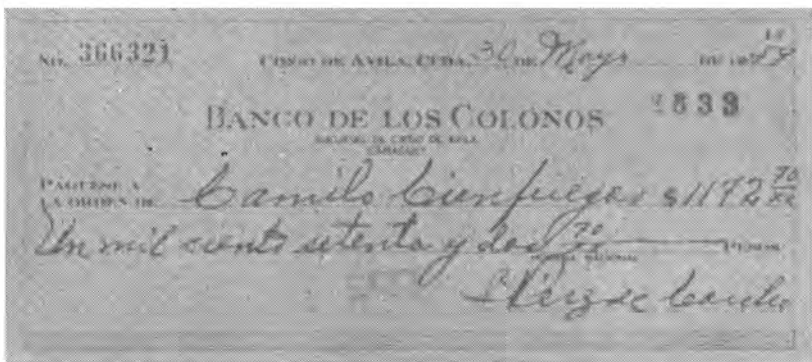 No. 366321 CIEGO DE AVILA, CUBA, 30 DE Mayo DE 19
BANCO DE LOS COLONOS 833
SUCURSAL DE CIEGO DE AVILA
CAMAGUEY
PAGUESE A
LA ORDEN DE Camilo Cienfuegos $1172 70/xx
Un mil ciento setenta y dos 70/xx PESOS
MONEDA NACIONAL